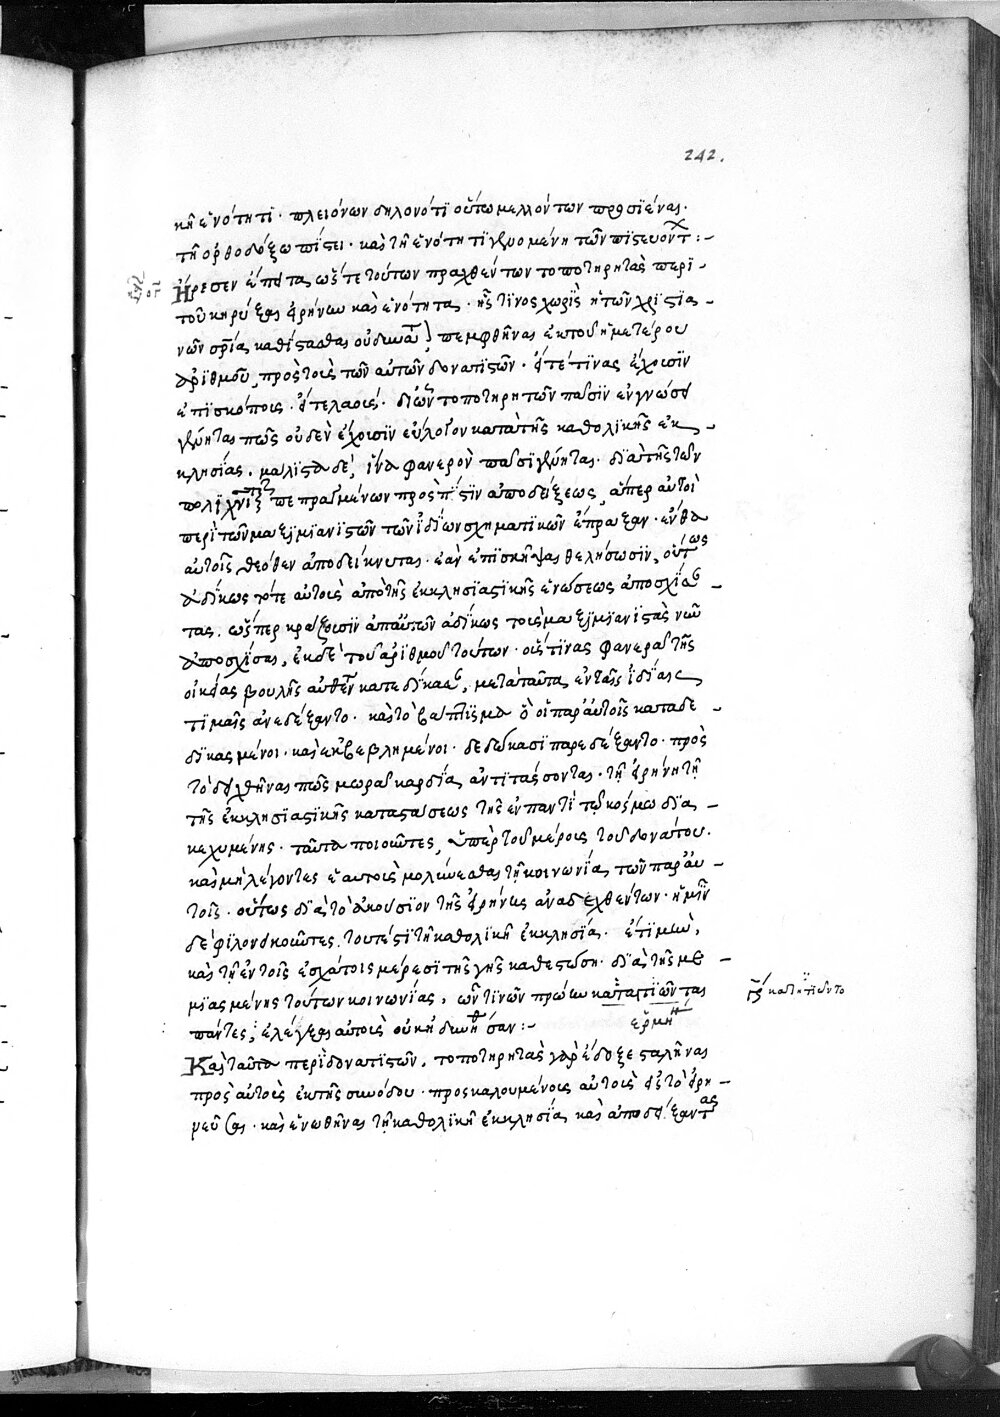 242.
κῆ ἑνότητι · πλειόνων δηλονότι οὕτω μελλόντων προσιέναι ·
τῇ ὀρθοδόξω πίστει · καὶ τῇ ἑνότητι γινομένη τῶν πιστευόντ :-
Ἤρεσεν ἔπειτα, ὥστε τούτων πραχθέντων τοποτηρητὰς περὶ
τοῦ κηρύξαι εἰρήνην καὶ ἑνότητα · ἧς τινος χωρὶς ἡ τῶν χριστια
νῶν σρία καθίστασθαι οὐ δύναται, πεμφθῆναι ἐκ τοῦ ἡμετέρου
ἀριθμοῦ, πρὸς τοὺς τῶν αὐτῶν δονατιστῶν · εἴτε τινας ἔχουσιν
ἐπισκόπους · εἴτε λαούς · δι' ὧν τοποτηρητῶν πᾶσιν ἐν γνώσει
γένηται πῶς οὐδὲν ἔχουσιν εὔλογον κατὰ τῆς καθολικῆς ἐκ
κλησίας · μάλιστα δὲ, ἵνα φανερὸν πᾶσι γένηται · διὰ τῆς τῶν
πεπραγμένων πρὸς πίστιν ἀποδείξεως, ἅπερ αὐτοὶ
περὶ τῶν μαξιμιανιστῶν τῶν ἰδίων σχηματικῶν ἔπραξαν · ἔνθα
αὐτοῖς θεόθεν ἀποδείκνυται · ἐὰν ἐπισκῆψαι θελήσωσιν, οὕτως
ἀδίκως τότε αὐτοὺς ἀπὸ τῆς ἐκκλησιαστικῆς ἑνώσεως ἀποσχίσαν
τας · ὥσπερ κράζουσιν ἀπ' αὐτῶν ἀδίκως τοὺς μαξιμιανιστὰς νῦν
ἀποσχίσαι, ἐκ δὲ τοῦ ἀριθμοῦ τούτων · οὕς τινας φανερᾶ τῆς
οἰκείας βουλῆς αὐθεντ κατεδίκασαν, μετὰ ταῦτα ἐν ταῖς ἰδίαις
τιμαῖς ἀνεδέξαντο · καὶ τὸ βάπτισμα ὃ οἱ παρ' αὐτοῖς καταδε
δικασμένοι · καὶ ἐκβεβλημένοι · δεδώκασι παρεδέξαντο · πρὸς
τὸ δειχθῆναι πῶς μωρᾶ καρδία, ἀντιτάσσονται · τῆ εἰρήνη τῆ
τῆς ἐκκλησιαστικῆς καταστάσεως τῆς ἐν παντὶ τῷ κόσμω δια
κεχυμένης · ταῦτα ποιοῦντες, ὑπὲρ τοῦ μέρους τοῦ δονάτου ·
καὶ μὴ λέγοντες ἑαυτοὺς μολύνεσθαι τῇ κοινωνία, τῶν παρ' αὐ
τοῖς · οὕτως διὰ τὸ ἀκούσιον τῆς εἰρήνης ἀναδεχθέντων · ἡμῖν
δὲ φιλονεικοῦντες, τουτέστι τῇ καθολικῇ ἐκκλησία · ἔτι μὴν,
καὶ τῇ ἐν τοῖς ἐσχάτοις μέρεσι τῆς γῆς καθεστώση · διὰ τῆς με
μιασμένης τούτων κοινωνίας, ὧν τινῶν πρώην κατατιῶντας
πάντες, ἐλέγξαι αὐτοὺς οὐκ ἠδυνήθησαν :-
γρ κατητιῶντο
ἑρμη
Καὶ ταῦτα περὶ δονατιστῶν · τοποτηρητὰς γὰρ ἔδοξε σταλῆναι
πρὸς αὐτοὺς ἐκ τῆς συνόδου · προσκαλουμένους αὐτοὺς εἰς τὸ εἰρη
νεῦσαι · καὶ ἑνωθῆναι τῇ καθολικῇ ἐκκλησία καὶ ἀποδείξαντας